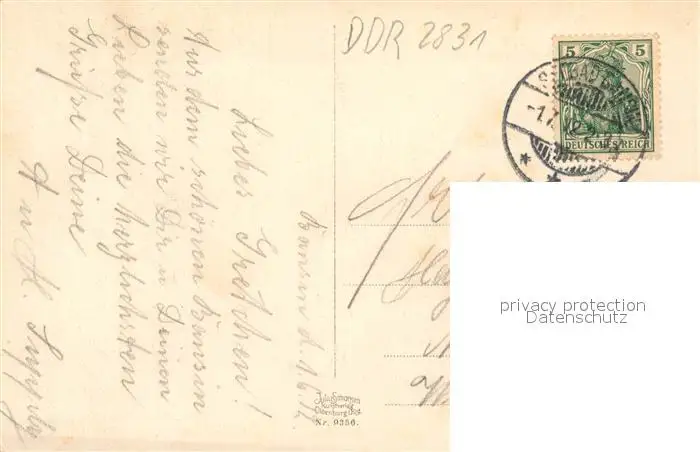 DDR 2831
5 5
DEUTSCHES REICH
SEEBAD BANSIN
-1.7.12
Bansin d. 1.6.12
Liebes Gretchen!
Aus dem schönen Bansin
senden wir Dir u Deinen
Lieben die herzlichsten
Grüße Deine
A u M.
Julius Simonsen
Kunstverlag
Oldenburg i/Holst.
Nr. 9356.
privacy protection
Datenschutz